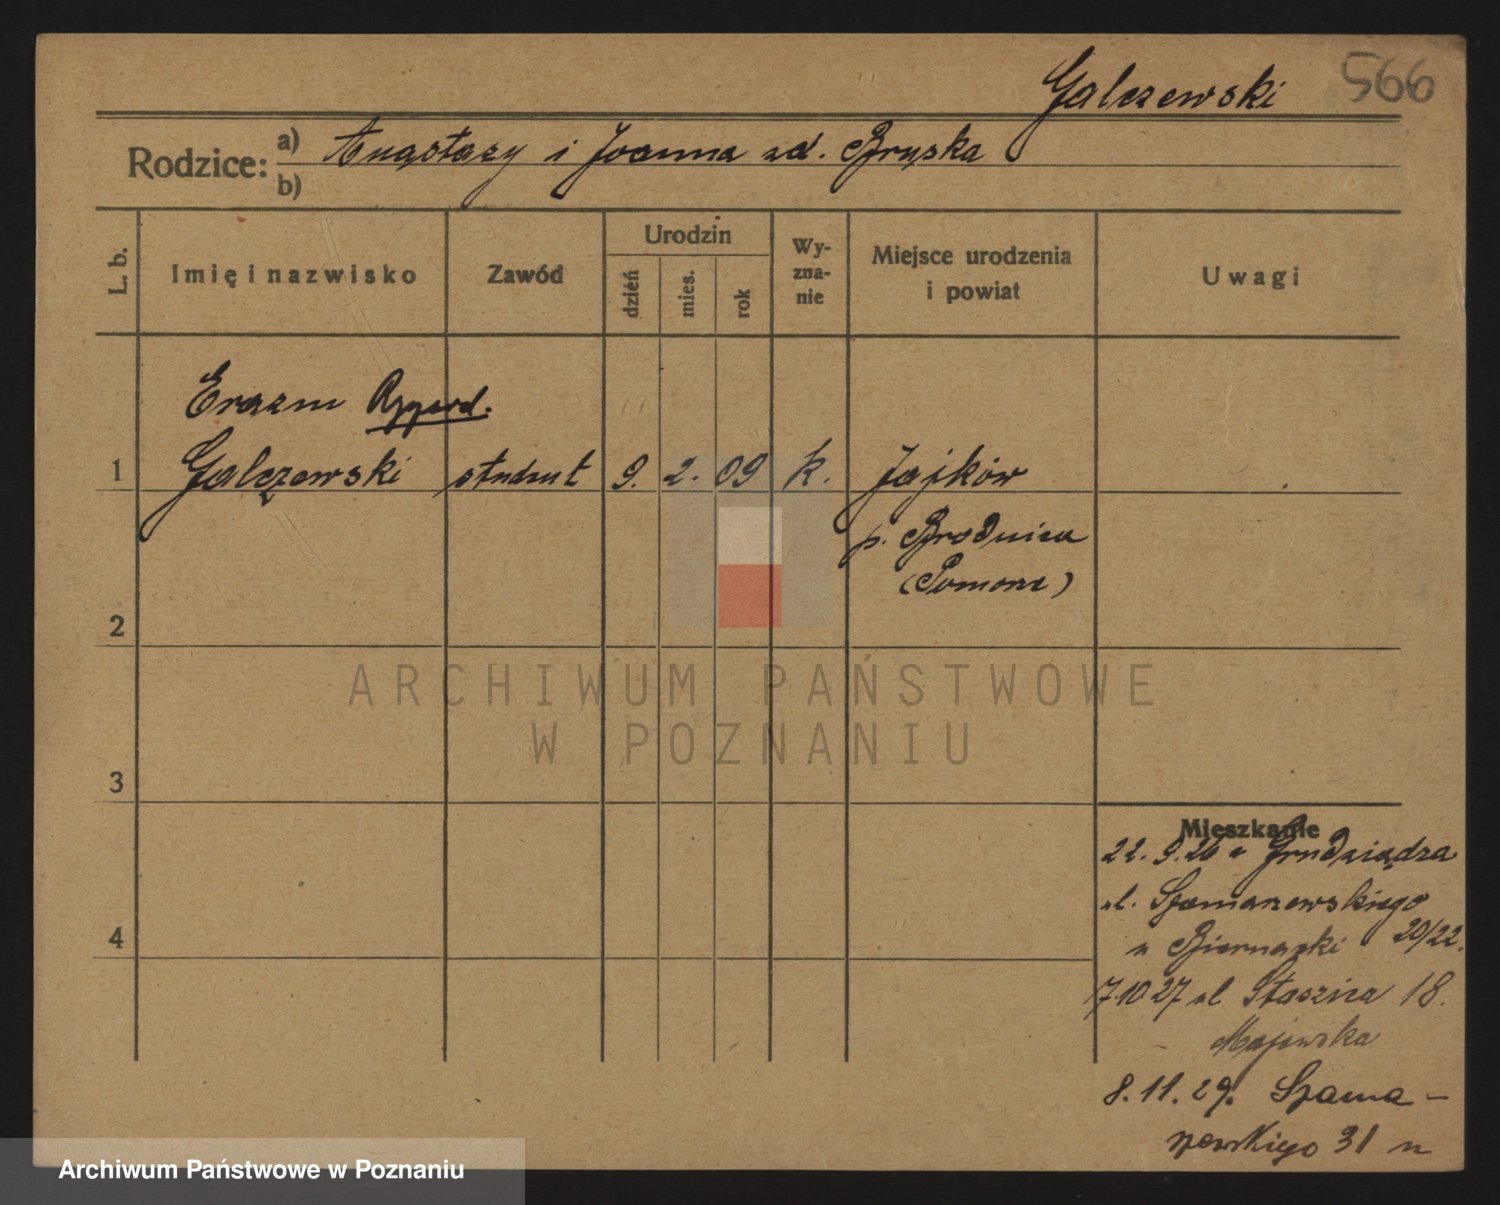 Galczewski 566
Rodzice: a) Anastazy i Joanna zd. Bryska
b)
L. b.
Imię i nazwisko
Zawód
Urodzin
dzień
mies.
rok
Wy-
zna-
nie
Miejsce urodzenia
i powiat
Uwagi
Erazm Ryszard.
1 Galczewski student 9. 2. 09 k. Jajków
p. Brodnica
(Pomorze)
2
ARCHIWUM PAŃSTWOWE
W POZNANIU
3
Mieszkanie
22. 9. 26 z Grudziądza
ul. Szamarzewskiego
4
u Biernacki 20/22.
7.10 27 ul Staszica 18.
Majewska
8. 11. 29. Szama-
rzewskiego 31
Archiwum Państwowe w Poznaniu